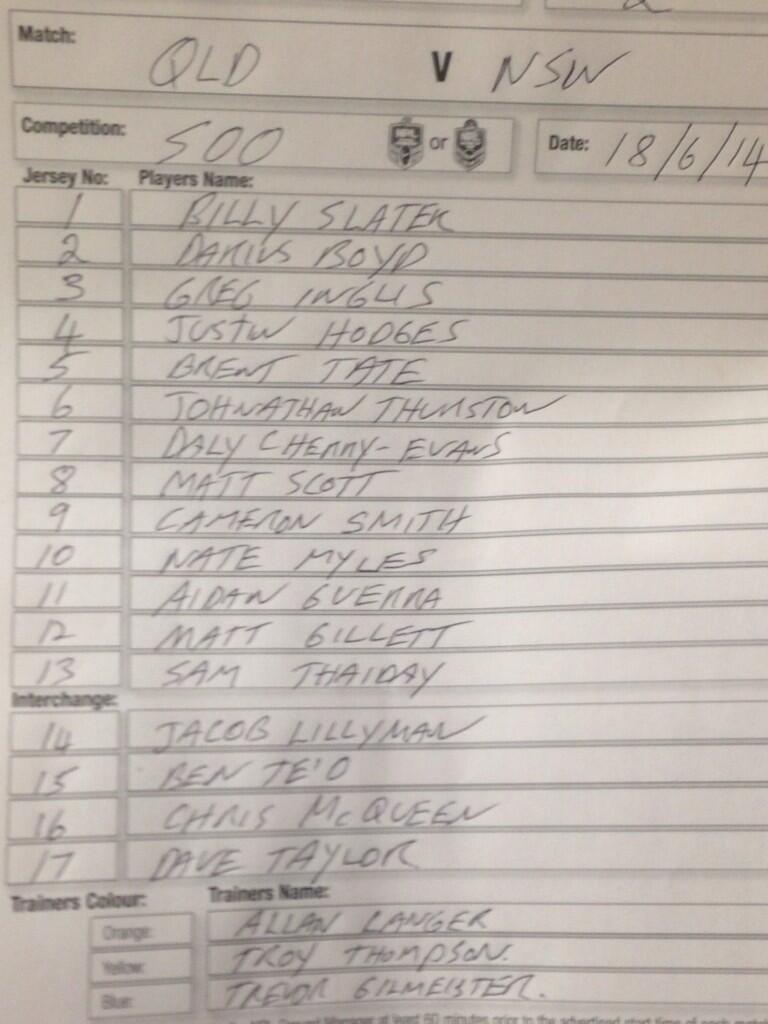 Match: QLD V NSW
Competition: SOO or Date: 18/6/14
Jersey No: Players Name:
1 BILLY SLATER
2 DARIUS BOYD
3 GREG INGLIS
4 JUSTIN HODGES
5 BRENT TATE
6 JOHNATHAN THURSTON
7 DALY CHERRY-EVANS
8 MATT SCOTT
9 CAMERON SMITH
10 NATE MYLES
11 AIDAN GUERRA
12 MATT GILLETT
13 SAM THAIDAY
Interchange:
14 JACOB LILLYMAN
15 BEN TE'O
16 CHRIS McQUEEN
17 DAVE TAYLOR
Trainers Colour: Trainers Name:
Orange: ALLAN LANGER
Yellow: TROY THOMPSON.
Blue: TREVOR GILMEISTER.
Manager at least 60 minutes prior to the advertised start time of each